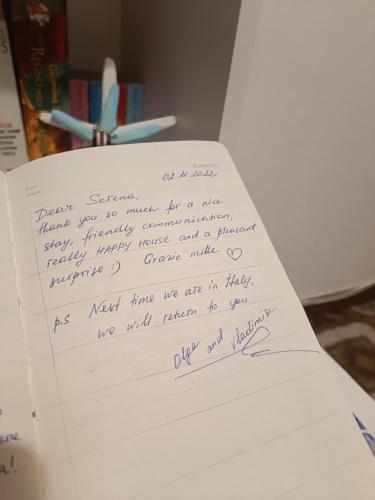 02.11.2022
Dear Serena,
thank you so much for a nice
stay, friendly communication,
really HAPPY HOUSE and a pleasant
surprise :) Grazie mille ♡
p.s. Next time we are in Italy,
we will return to you
Olga and Vladimir